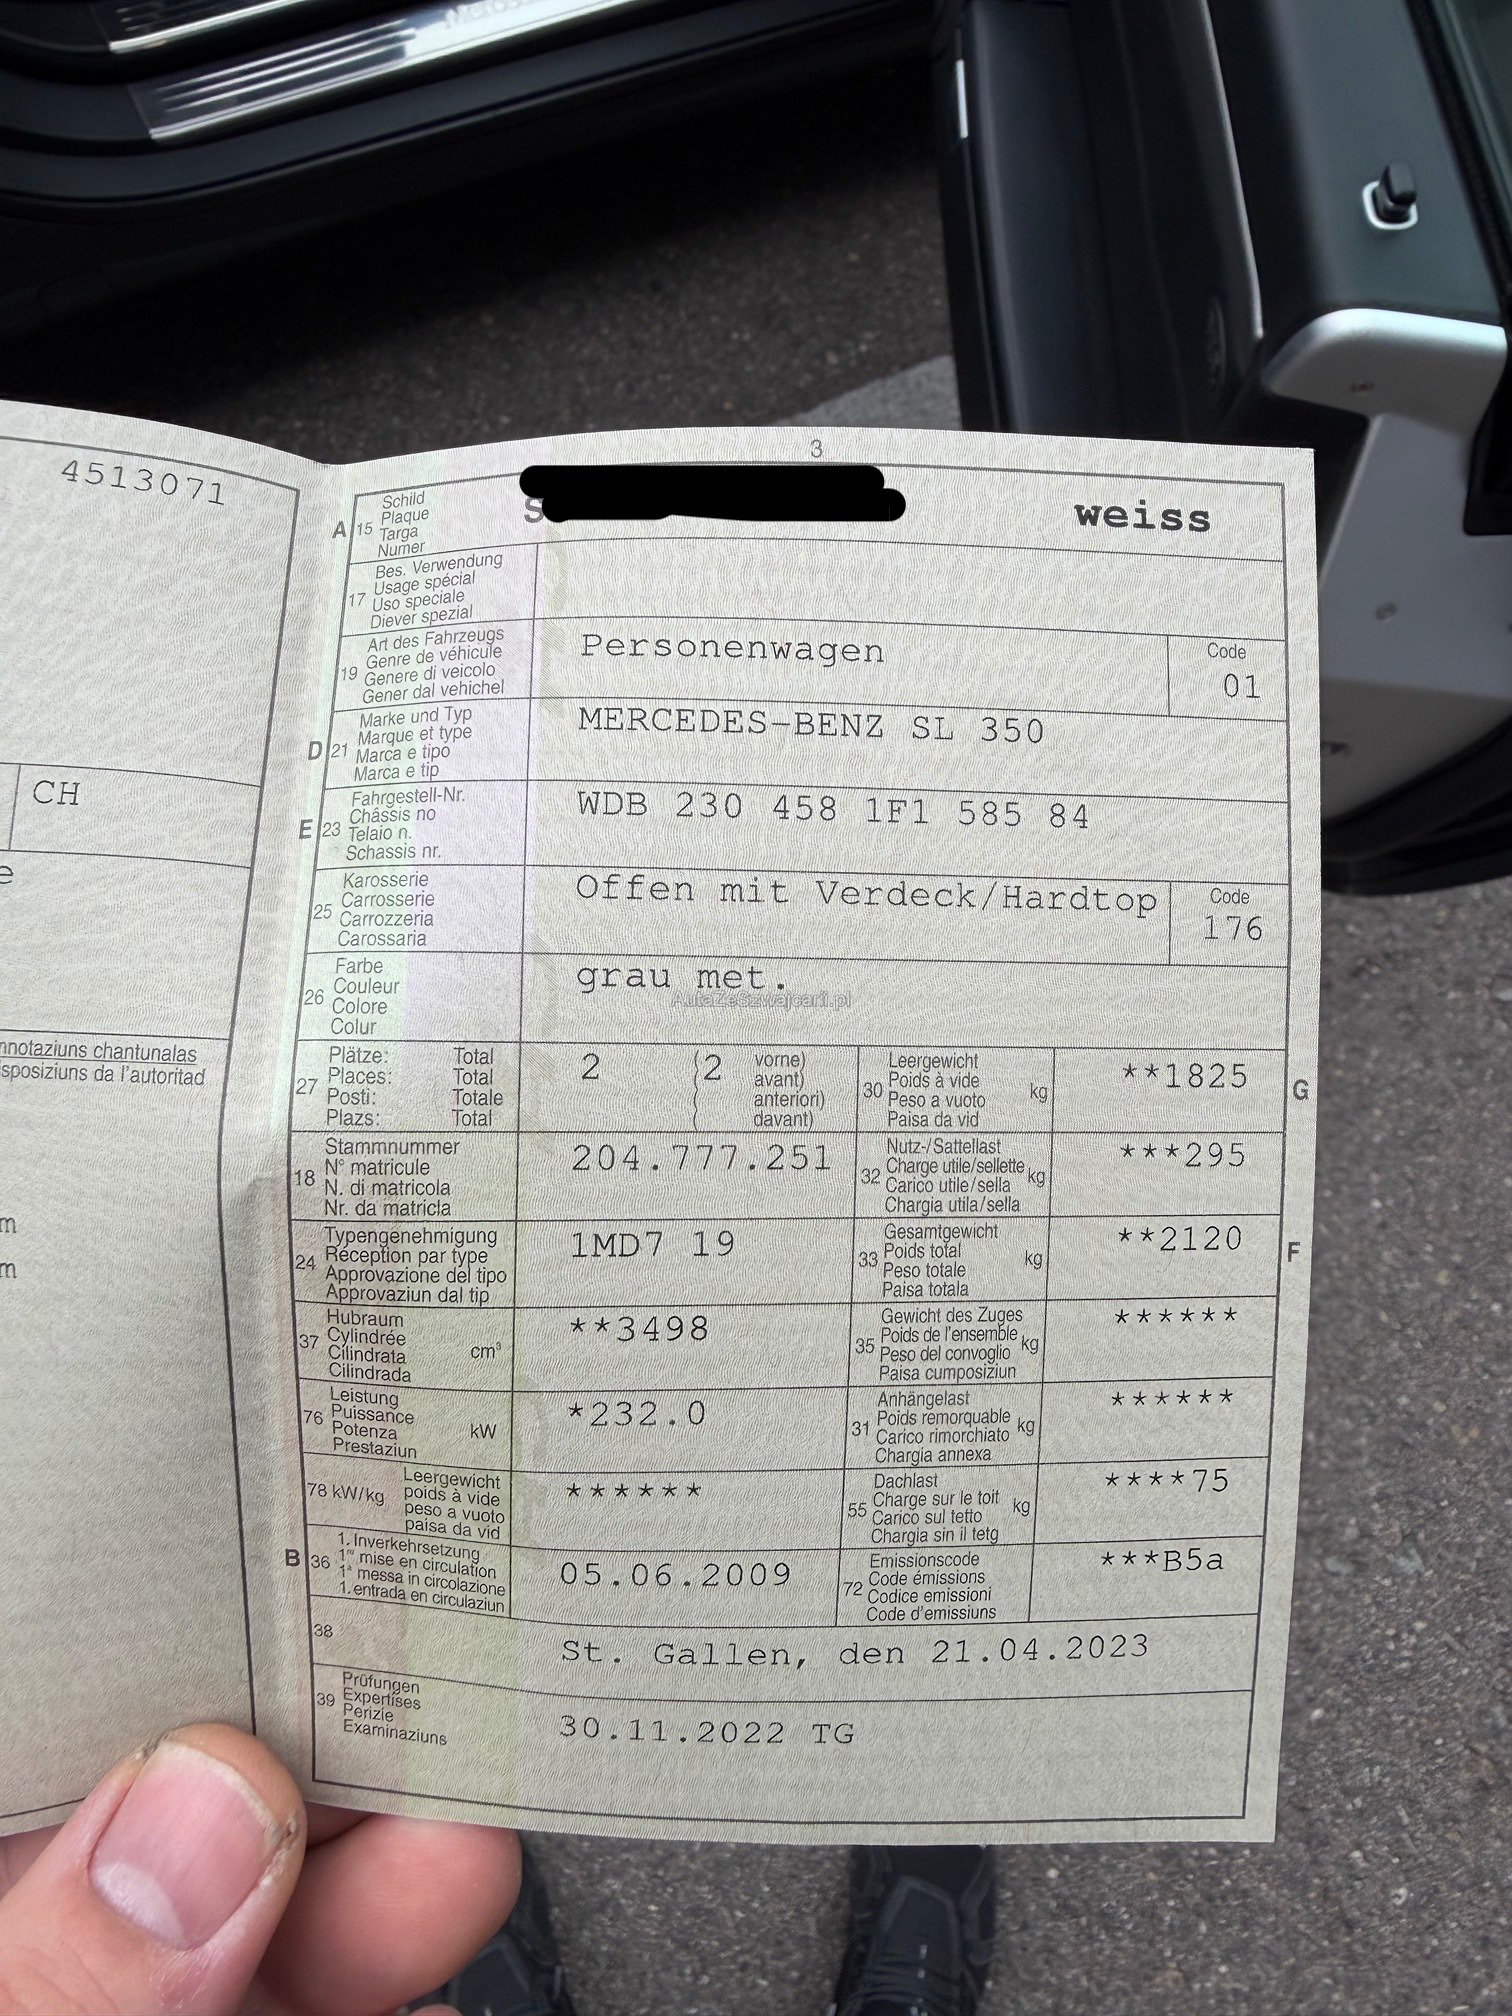 4513071
CH
e
nnotaziuns chantunalas
sposiziuns da l'autoritad
m
m
3
A 15 Schild
Plaque
Targa
Numer
S
weiss
17 Bes. Verwendung
Usage spécial
Uso speciale
Diever spezial
19 Art des Fahrzeugs
Genre de véhicule
Genere di veicolo
Gener dal vehichel
Personenwagen
Code
01
D 21 Marke und Typ
Marque et type
Marca e tipo
Marca e tip
MERCEDES-BENZ SL 350
E 23 Fahrgestell-Nr.
Châssis no
Telaio n.
Schassis nr.
WDB 230 458 1F1 585 84
25 Karosserie
Carrosserie
Carrozzeria
Carossaria
Offen mit Verdeck/Hardtop
Code
176
26 Farbe
Couleur
Colore
Colur
grau met.
AutaZeSzwajcarii.pl
27 Plätze: Total
Places: Total
Posti: Totale
Plazs: Total
2 (2 vorne)
( avant)
( anteriori)
( davant)
30 Leergewicht
Poids à vide
Peso a vuoto
Paisa da vid
kg
**1825
G
18 Stammnummer
N° matricule
N. di matricola
Nr. da matricla
204.777.251
32 Nutz-/Sattellast
Charge utile/sellette
Carico utile/sella
Chargia utila/sella
kg
***295
24 Typengenehmigung
Réception par type
Approvazione del tipo
Approvaziun dal tip
1MD7 19
33 Gesamtgewicht
Poids total
Peso totale
Paisa totala
kg
**2120
F
37 Hubraum
Cylindrée
Cilindrata
Cilindrada
cm³
**3498
35 Gewicht des Zuges
Poids de l'ensemble
Peso del convoglio
Paisa cumposiziun
kg
******
76 Leistung
Puissance
Potenza
Prestaziun
kW
*232.0
31 Anhängelast
Poids remorquable
Carico rimorchiato
Chargia annexa
kg
******
78 kW/kg Leergewicht
poids à vide
peso a vuoto
paisa da vid
******
55 Dachlast
Charge sur le toit
Carico sul tetto
Chargia sin il tetg
kg
****75
B 36 1. Inverkehrsetzung
1re mise en circulation
1a messa in circolazione
1. entrada en circulaziun
05.06.2009
72 Emissionscode
Code émissions
Codice emissioni
Code d'emissiuns
***B5a
38
St. Gallen, den 21.04.2023
39 Prüfungen
Expertises
Perizie
Examinaziuns
30.11.2022 TG